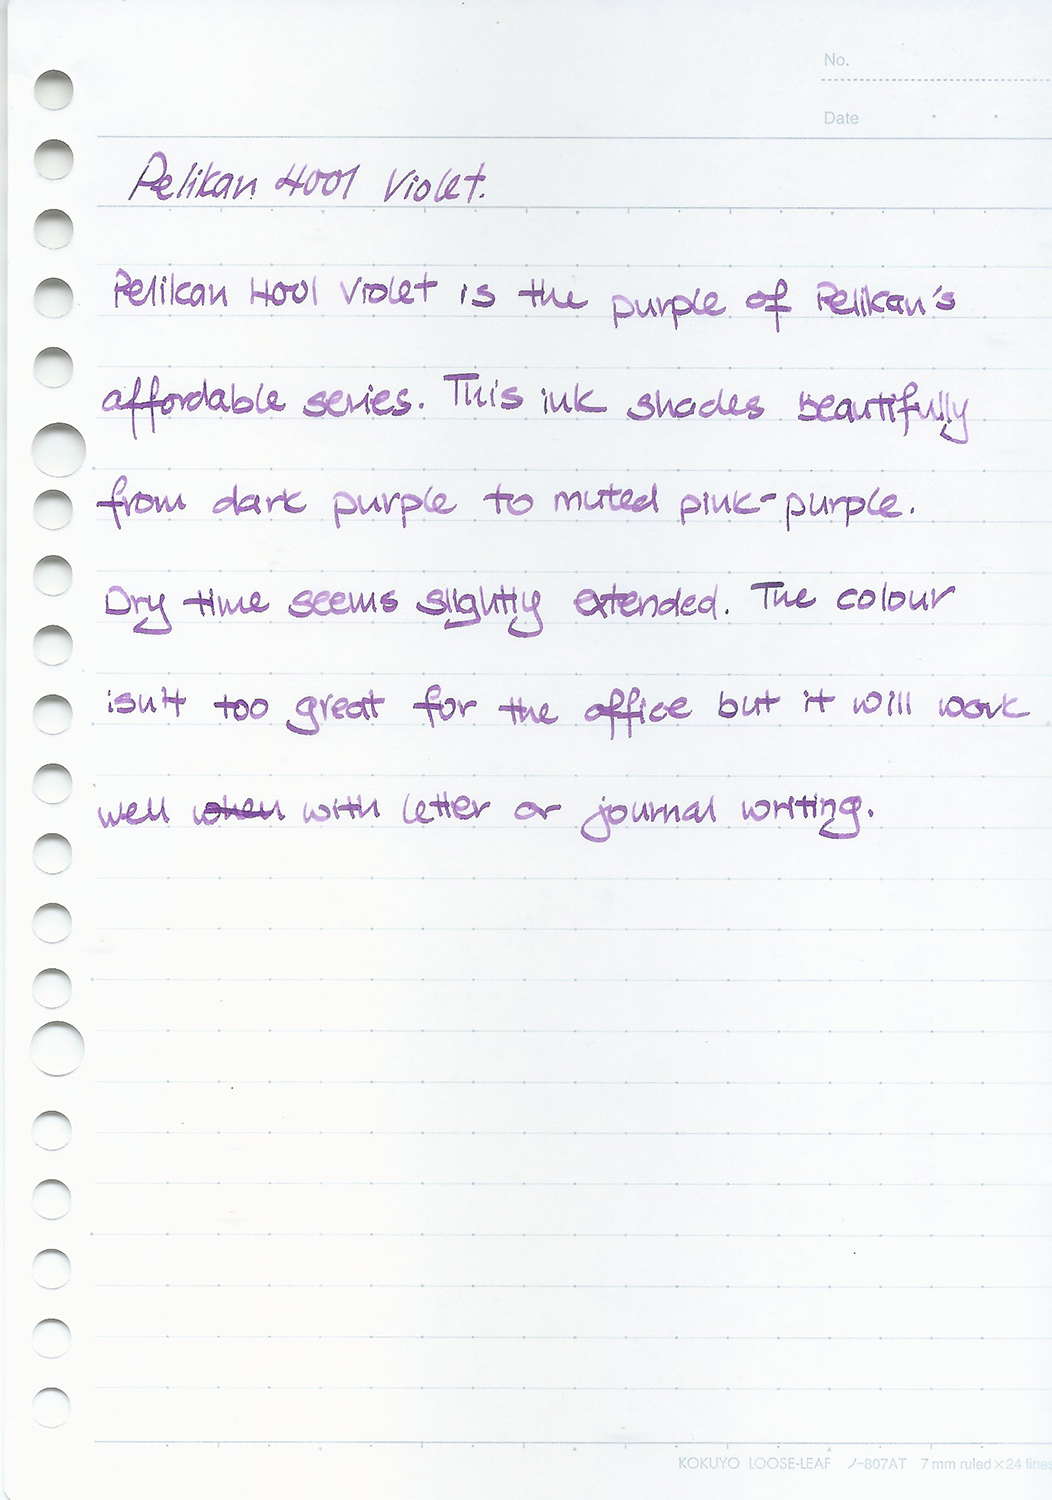 No.
Date
Pelikan 4001 Violet.
Pelikan 4001 Violet is the purple of Pelikan's
affordable series. This ink shades beautifully
from dark purple to muted pink-purple.
Dry time seems slightly extended. The colour
isn't too great for the office but it will work
well when with letter or journal writing.
KOKUYO LOOSE-LEAF ノ-807AT 7 mm ruled×24 lines